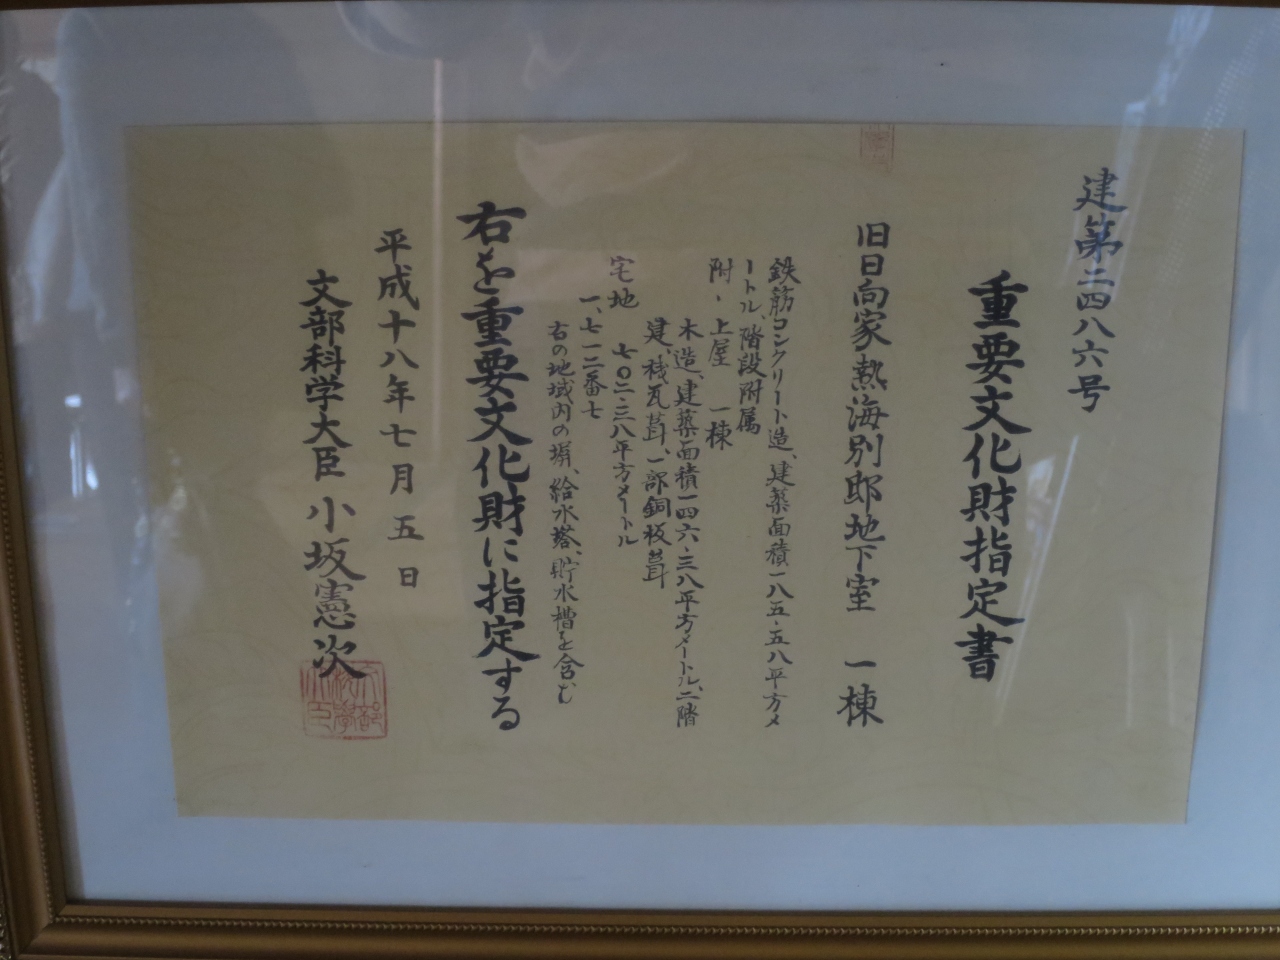 建第二四八六号
重要文化財指定書
旧日向家熱海別邸地下室　一棟
鉄筋コンクリート造、建築面積一八五・五八平方メ
ートル、階段附属
附・上屋　一棟
木造、建築面積一四六・三八平方メートル、二階
建、桟瓦葺、一部銅板葺
宅地　七〇二・三八平方メートル
一、七一二番七
右の地域内の塀、給水塔、貯水槽を含む
右を重要文化財に指定する
平成十八年七月五日
文部科学大臣　小坂憲次